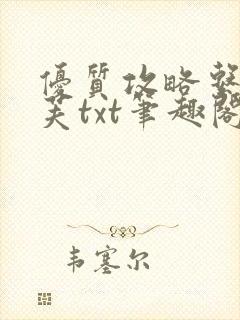 優質攻略
芙txt筆趣閣
韦塞尔